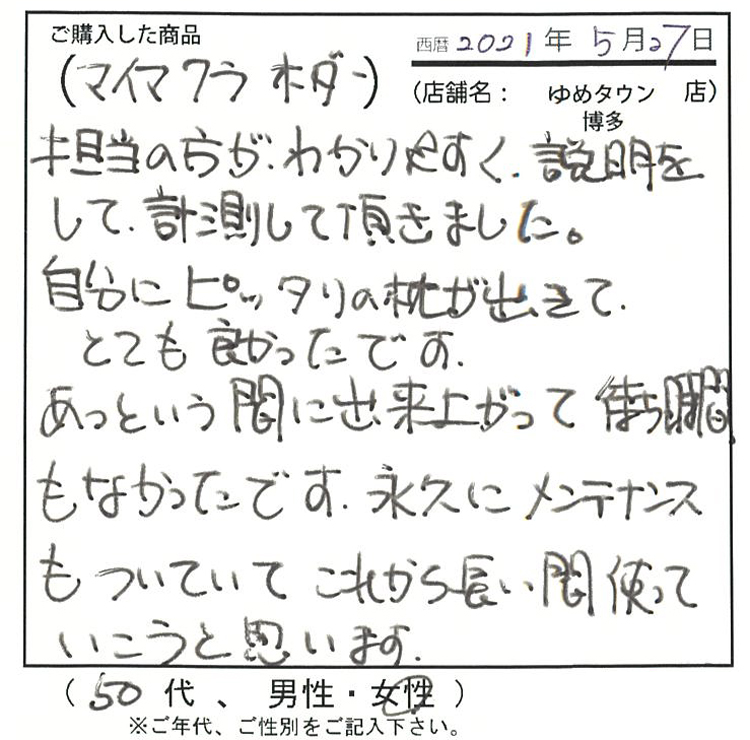 ご購入した商品
西暦 2021 年 5月27日
(マイマクラ ホダー)
(店舗名: ゆめタウン 店)
博多
担当の方が、わかりやすく、説明を
して、計測して頂きました。
自分にピッタリの枕が出きて、
とても良かったです。
あっという間に出来上がって待ち時間
もなかったです。永久にメンテナンス
もついていてこれから長い間使って
いこうと思います。
(50代、男性・女性)
※ご年代、ご性別をご記入下さい。